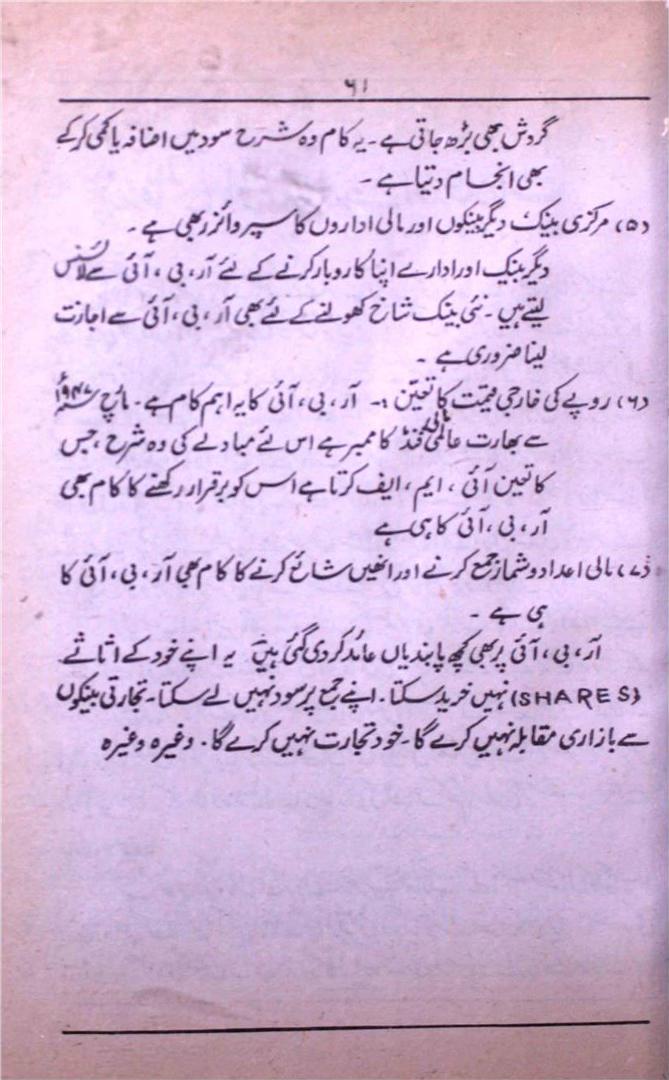 ۶۱
گردش بھی بڑھ جاتی ہے۔ یہ کام وہ شرح سود میں اضافہ یا کمی کرکے
بھی انجام دیتا ہے۔
(۵) مرکزی بینک دیگر بینکوں اور مالی اداروں کا سپروائزر بھی ہے۔
دیگر بینک اور ادارے اپنا کاروبار کرنے کے لئے آر، بی، آئی سے لائسنس
لیتے ہیں۔ نئی بینک شاخ کھولنے کے لئے بھی آر، بی، آئی سے اجازت
لینا ضروری ہے۔
(۶) روپے کی خارجی قیمت کا تعین :۔ آر، بی، آئی کا یہ اہم کام ہے۔ مارچ ۱۹۴۷ء
سے بھارت عالمی مالی فنڈ کا ممبر ہے اس لئے مبادلے کی وہ شرح، جس
کا تعین آئی، ایم، ایف کرتا ہے اس کو برقرار رکھنے کا کام بھی
آر، بی، آئی کا ہی ہے
(۷) مالی اعداد و شمار جمع کرنے اور انھیں شائع کرنے کا کام بھی آر، بی، آئی کا
ہی ہے۔
آر، بی، آئی پر بھی کچھ پابندیاں عائد کردی گئی ہیں یہ اپنے خود کے اثاثے
(SHARES) نہیں خرید سکتا۔ اپنے جمع پر سود نہیں لے سکتا۔ تجارتی بینکوں
سے بازاری مقابلہ نہیں کرے گا۔ خود تجارت نہیں کرے گا۔ وغیرہ وغیرہ